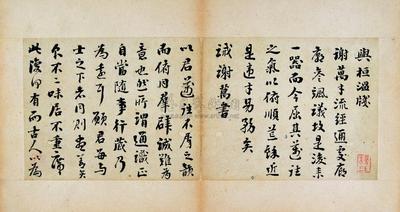 與桓溫牋
謝萬才流經通處廊
廟參諷議故是後来
一器而今屈其邁往
之氣以俯順荒餘近
是違才易務矣
誡謝萬書
以君邁往不屑之韻
而俯同羣辟誠難為
意也然所謂通識正
自當隨事行藏乃
為遠耳願君每與
士之下者同則盡善矣
食不二味居不重席
此復何有而古人以為